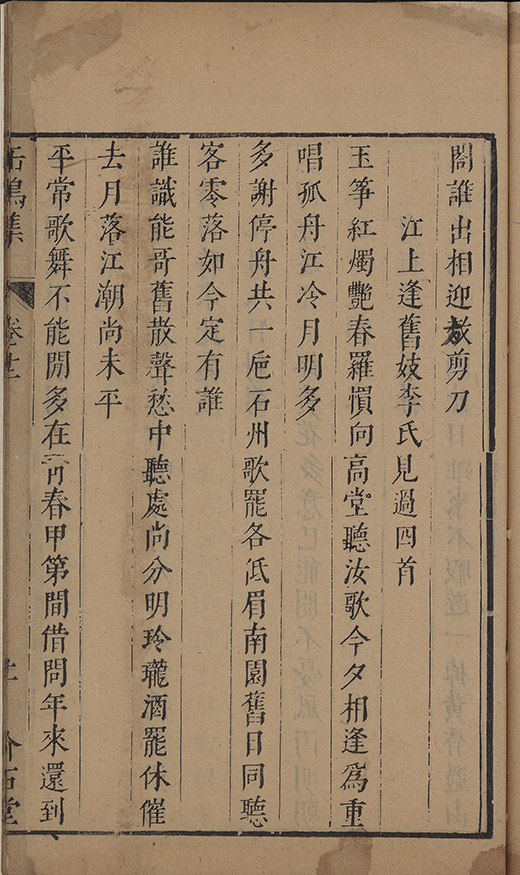 閤誰出相迎放剪刀
江上逢舊妓李氏見過四首
玉箏紅燭艷春羅慣向高堂聽汝歌今夕相逢爲重
唱孤舟江冷月明多
多謝停舟共一巵石州歌罷各低眉南園舊日同聽
客零落如今定有誰
誰識能哥舊散聲愁中聽處尚分明玲瓏酒罷休催
去月落江潮尚未平
平常歌舞不能閒多在青春甲第間借問年來還到
卷十二
介石堂